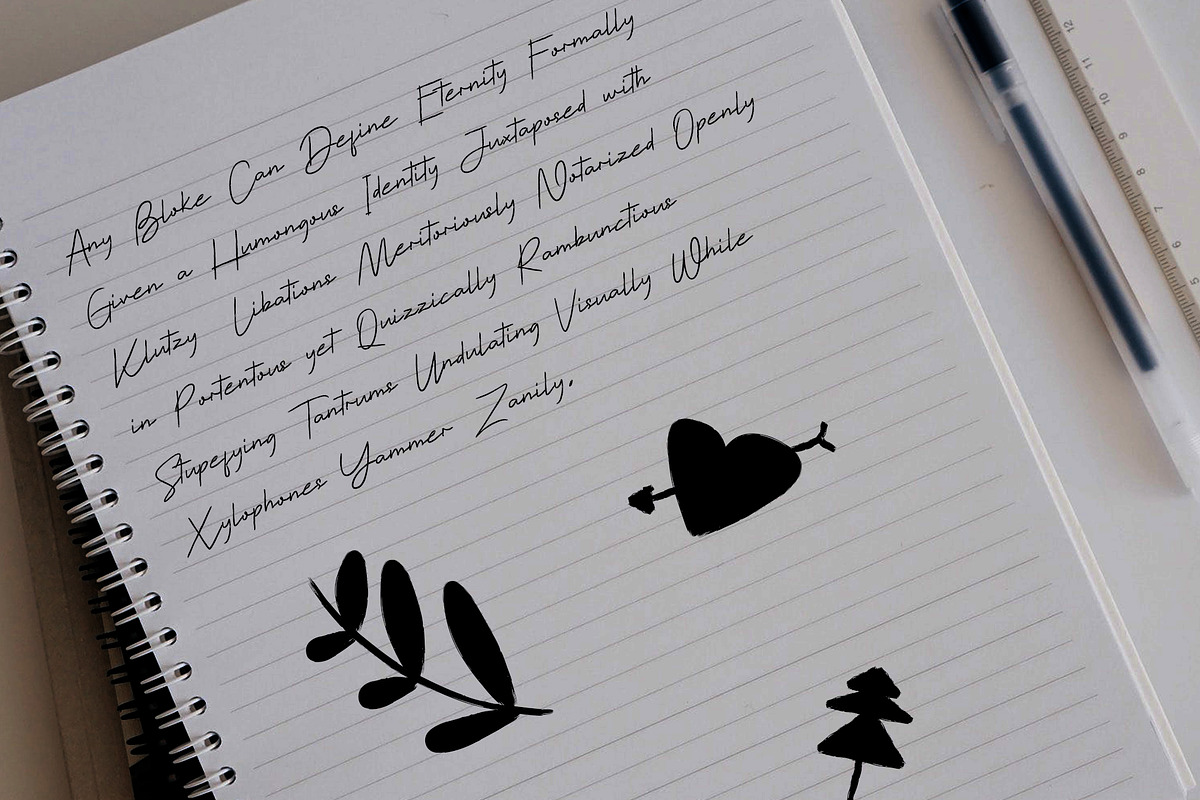 Any Bloke Can Define Eternity Formally
Given a Humongous Identity Juxtaposed with
Klutzy Libations Meritoriously Notarized Openly
in Portentous yet Quizzically Rambunctious
Stupefying Tantrums Undulating Visually While
Xylophones Yammer Zanily.
12
11
10
9
8
7
6
5